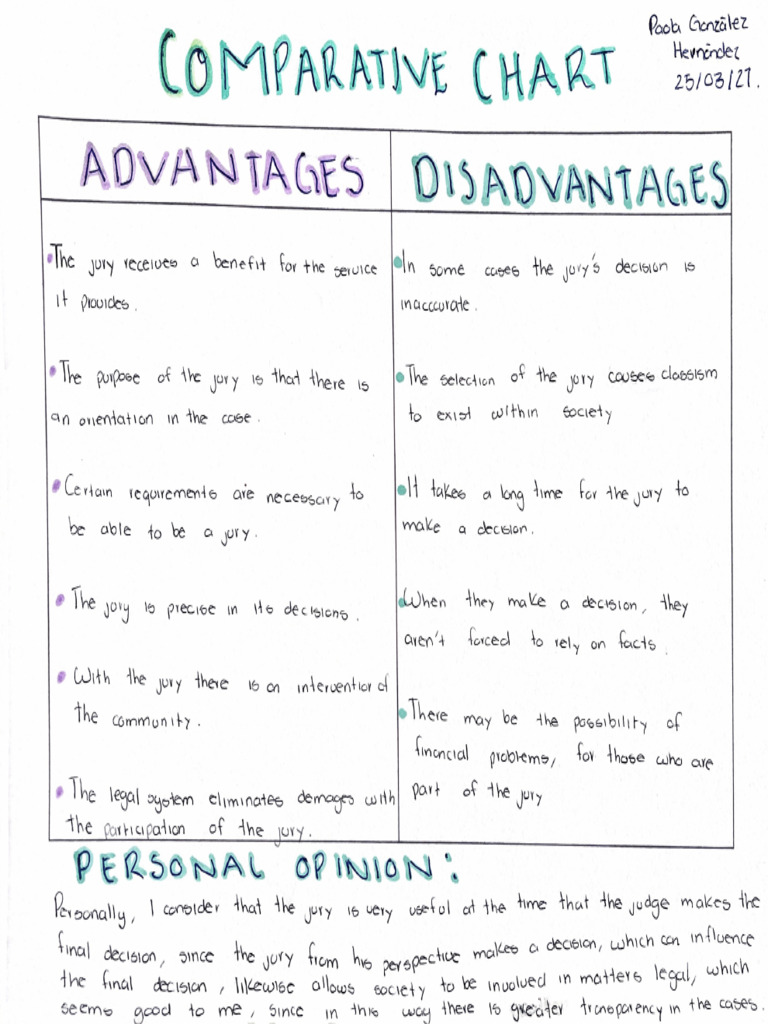 Paola González
Hernández
25/03/21.
COMPARATIVE CHART
ADVANTAGES
•The jury receives a benefit for the service
it provides.
•The purpose of the jury is that there is
an orientation in the case.
•Certain requirements are necessary to
be able to be a jury.
•The jury is precise in its decisions.
•With the jury there is an intervention of
the community.
•The legal system eliminates demages with
the participation of the jury.
DISADVANTAGES
•In some cases the jury's decision is
inacccurate.
•The selection of the jury causes classism
to exist within society
•It takes a long time for the jury to
make a decision.
•When they make a decision, they
aren't forced to rely on facts.
•There may be the possibility of
financial problems, for those who are
part of the jury
PERSONAL OPINION:
Personally, I consider that the jury is very useful at the time that the judge makes the
final decision, since the jury from his perspective makes a decision, which can influence
the final decision, likewise allows society to be involved in matters legal, which
seems good to me, since in this way there is greater transparency in the cases.